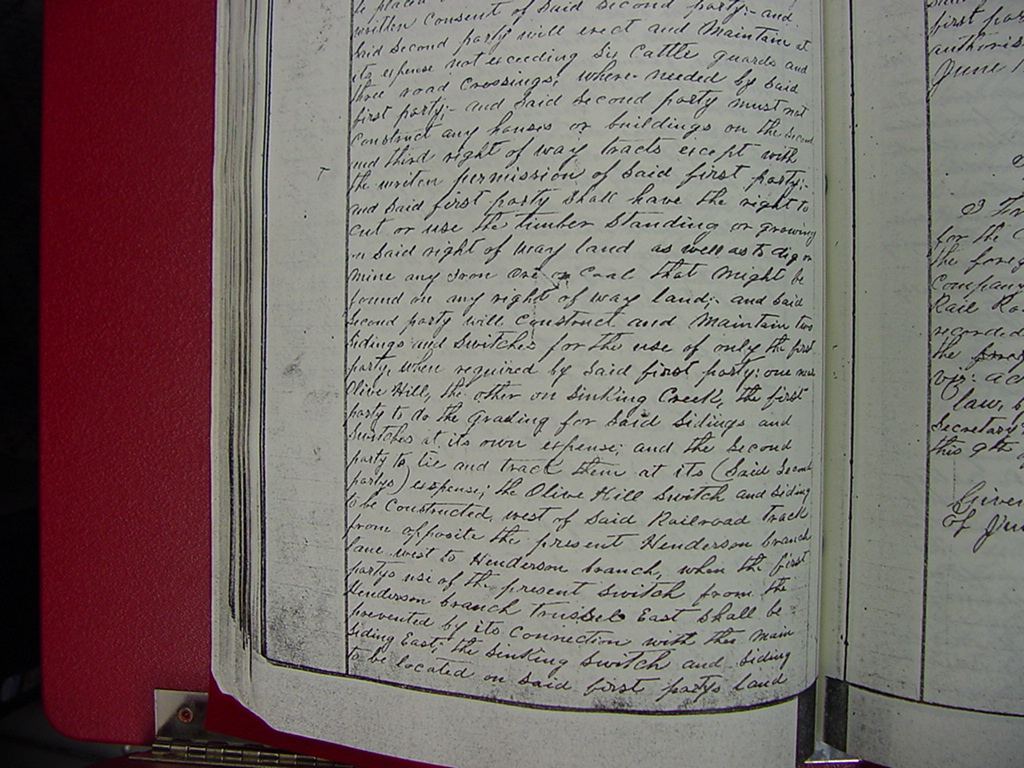 be placed
written consent of said second party;- and
said second party will erect and maintain at
its expense not exceeding six cattle guards and
three road crossings, where needed by said
first party;- and said second party must not
construct any houses or buildings on the second
and third right of way tracts except with
the writen permission of said first party;-
and said first party shall have the right to
cut or use the timber standing or growing
on said right of way land as well as to dig or
mine any iron ore or coal that might be
found on any right of way land;- and said
second party will construct and maintain two
sidings and switches for the use of only the first
party, when required by said first party: one near
Olive Hill, the other on Sinking Creek, the first
party to do the grading for said sidings and
switches at its own expense; and the second
party to tie and track them at its (said second
partys) expense; the Olive Hill switch and siding
to be constructed, west of said Railroad track
from opposite the present Henderson branch
lane west to Henderson branch, when the first
partys use of the present switch from the
Henderson branch trussel East shall be
prevented by its connection with the main
siding East, the Sinking switch and siding
to be located on said first partys land
first par
authoris
June 1
for the
the foreg
Compan
Rail Ro
recorded
the
viz: ac
law,
Secretary
this 9th
Given
of Jun